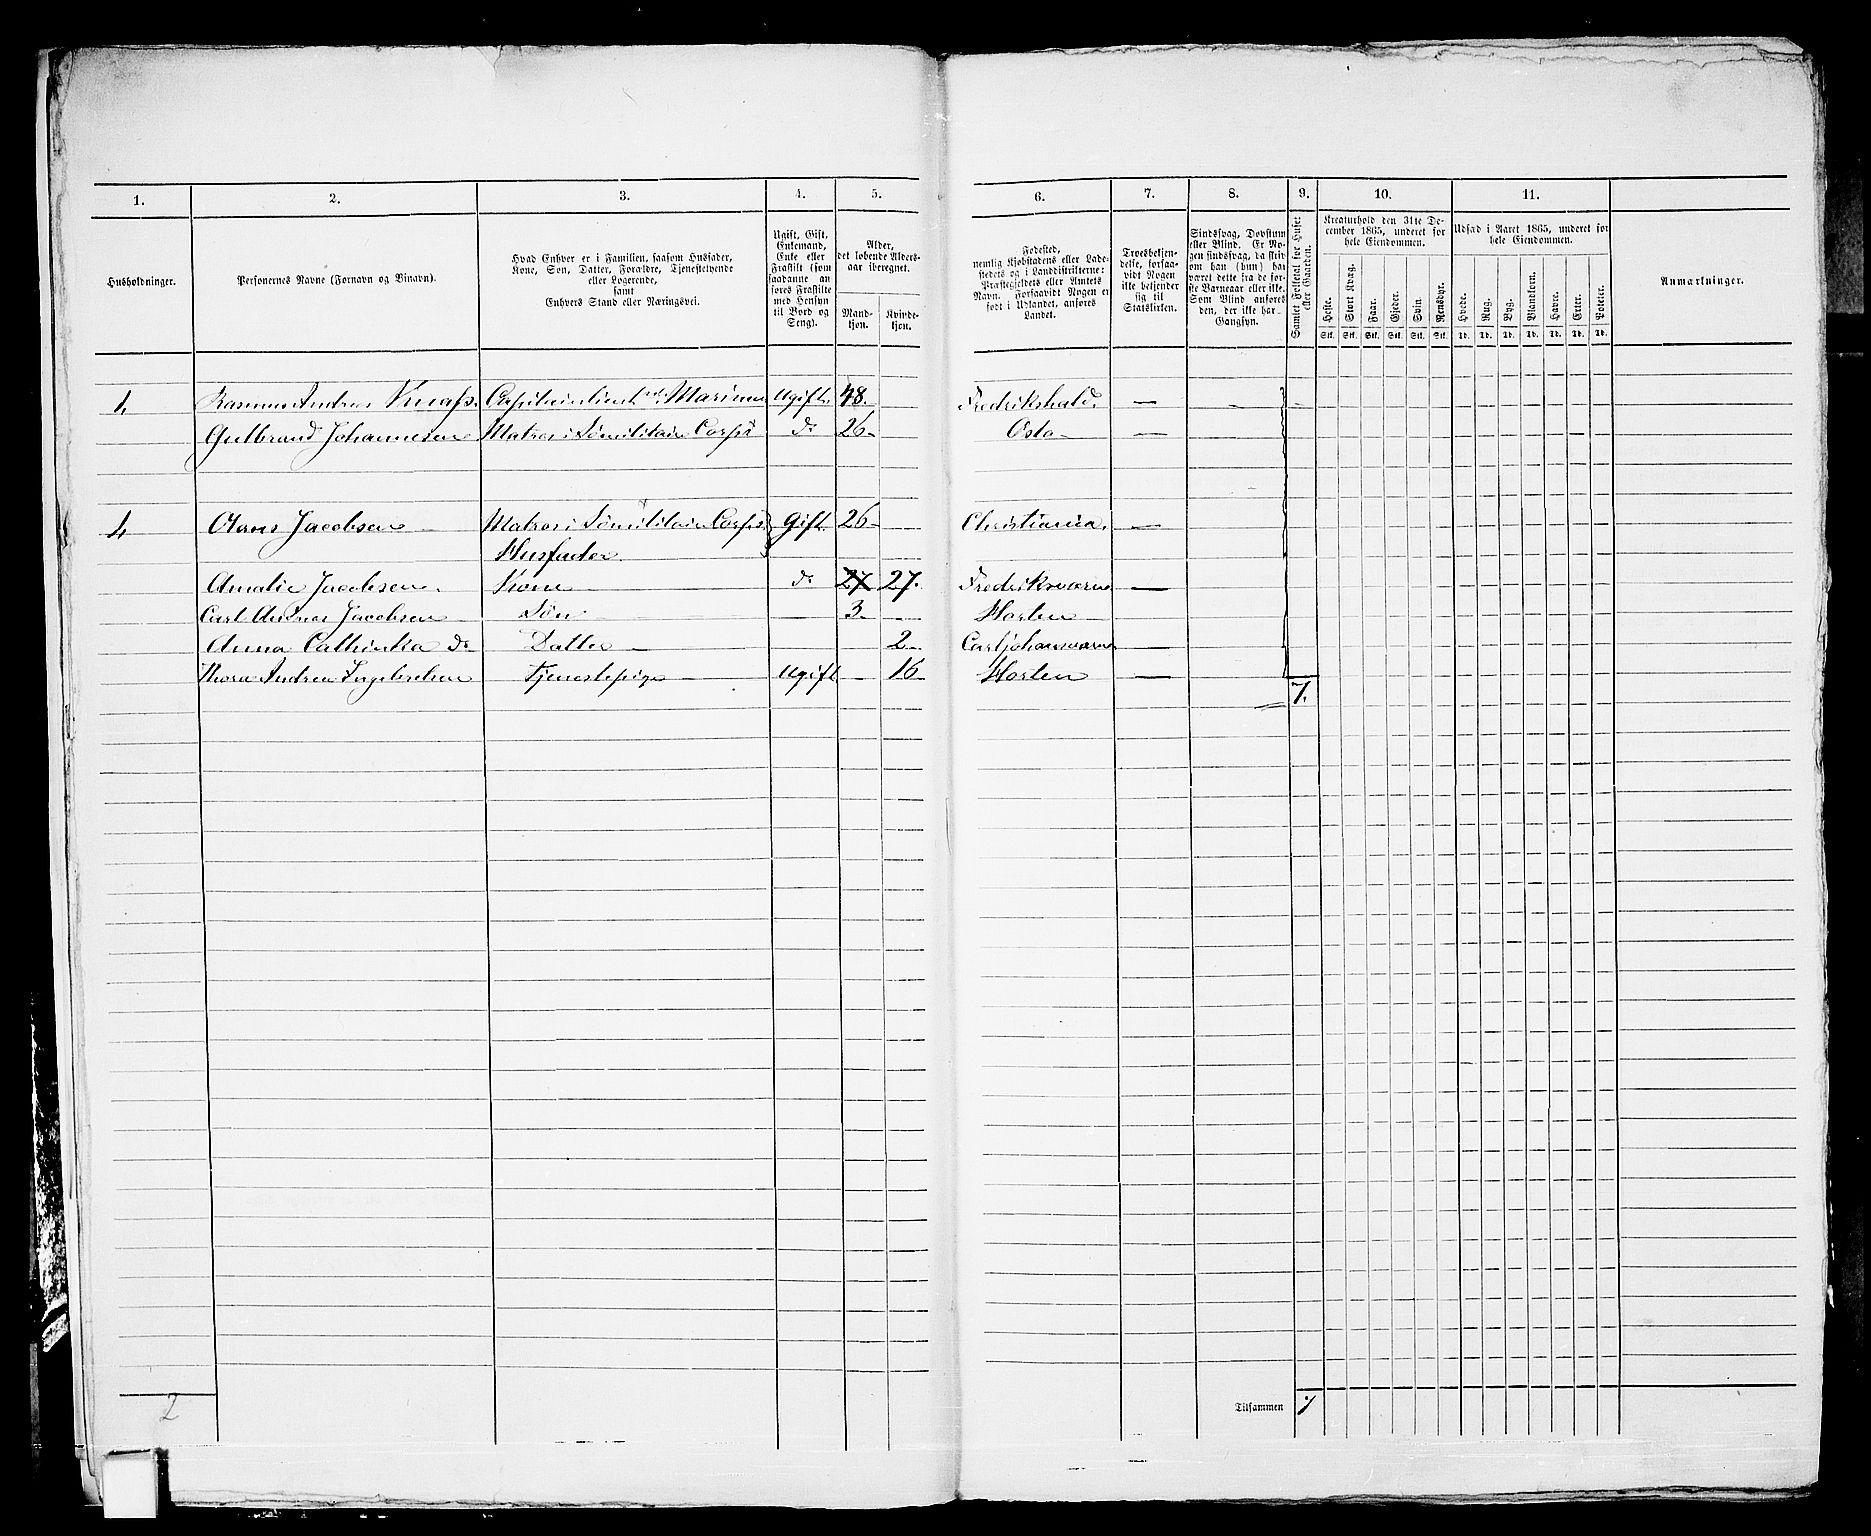 1. 2. 3. 4. 5. 6. 7. 8. 9. 10. 11.
Husholdninger.
Personernes Navne (Fornavn og Binavn).
Hvad Enhver er i Familien, saasom Husfader,
Kone, Søn, Datter, Forældre, Tjenestetyende
eller Logerende,
samt
Enhvers Stand eller Næringsvei.
Ugift, Gift,
Enkemand,
Enke eller
Fraskilt (som
saadanne an-
føres Fraskilte
med Hensyn
til Bord og
Seng).
Alder,
det løbende Alders-
aar iberegnet.
Mand-
kjøn.
Kvinde-
kjøn.
Fødested,
nemlig Kjøbstadens eller Lade-
stedets og i Landdistrikterne:
Præstegjeldets eller Amtets
Navn. Forsaavidt Nogen er
født i Udlandet, anføres
Landet.
Troesbekjen-
delse, forsaa-
vidt Nogen
ikke bekjender
sig til
Statskirken.
Sindssvag, Døvstum
eller Blind. Er No-
gen sindssvag, da skriv
om han (hun) har
været dette fra de før-
ste Barneaar eller ikke.
Som Blind anføres
den, der ikke har
Gangsyn.
Samlet Folketal for Huset
eller Gaarden.
Kreaturhold den 31te De-
cember 1865, underet for
hele Eiendommen.
Heste. Stort Kvæg. Faar. Gjeder. Svin. Rensdyr.
Stk. Stk. Stk. Stk. Stk. Stk.
Udsæd i Aaret 1865, underet for
hele Eiendommen.
Hvede. Rug. Byg. Blandkorn. Havre. Erter. Poteter.
Td. Td. Td. Td. Td. Td. Td.
Anmærkninger.
1. Rasmus Andreas Knap. Capitainlieut. Marinen Ugift. 48. Fredrikshald. — —
Gulbrand Johannesen Matros i Sømilitair Corps do 26 — —
1. Jacobsen — Matros i Sømilitair Corps Gift 26 Christiania. —
Husfader
Amalie Jacobsen. Kone do 27 27. Fredriksværn —
Carl Jacobsen Søn 3. Horten
Anna Cathinka do Datter — 2 Carljohansværn
Thora Andrea Tjenestepige — Ugift — 16 Horten — 7.
2
Tilsammen 7